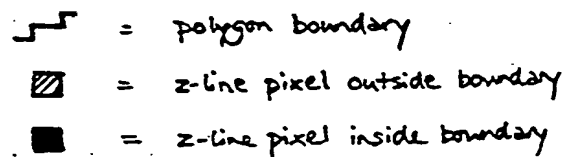 = polygon boundary
= z-line pixel outside boundary
= z-line pixel inside boundary